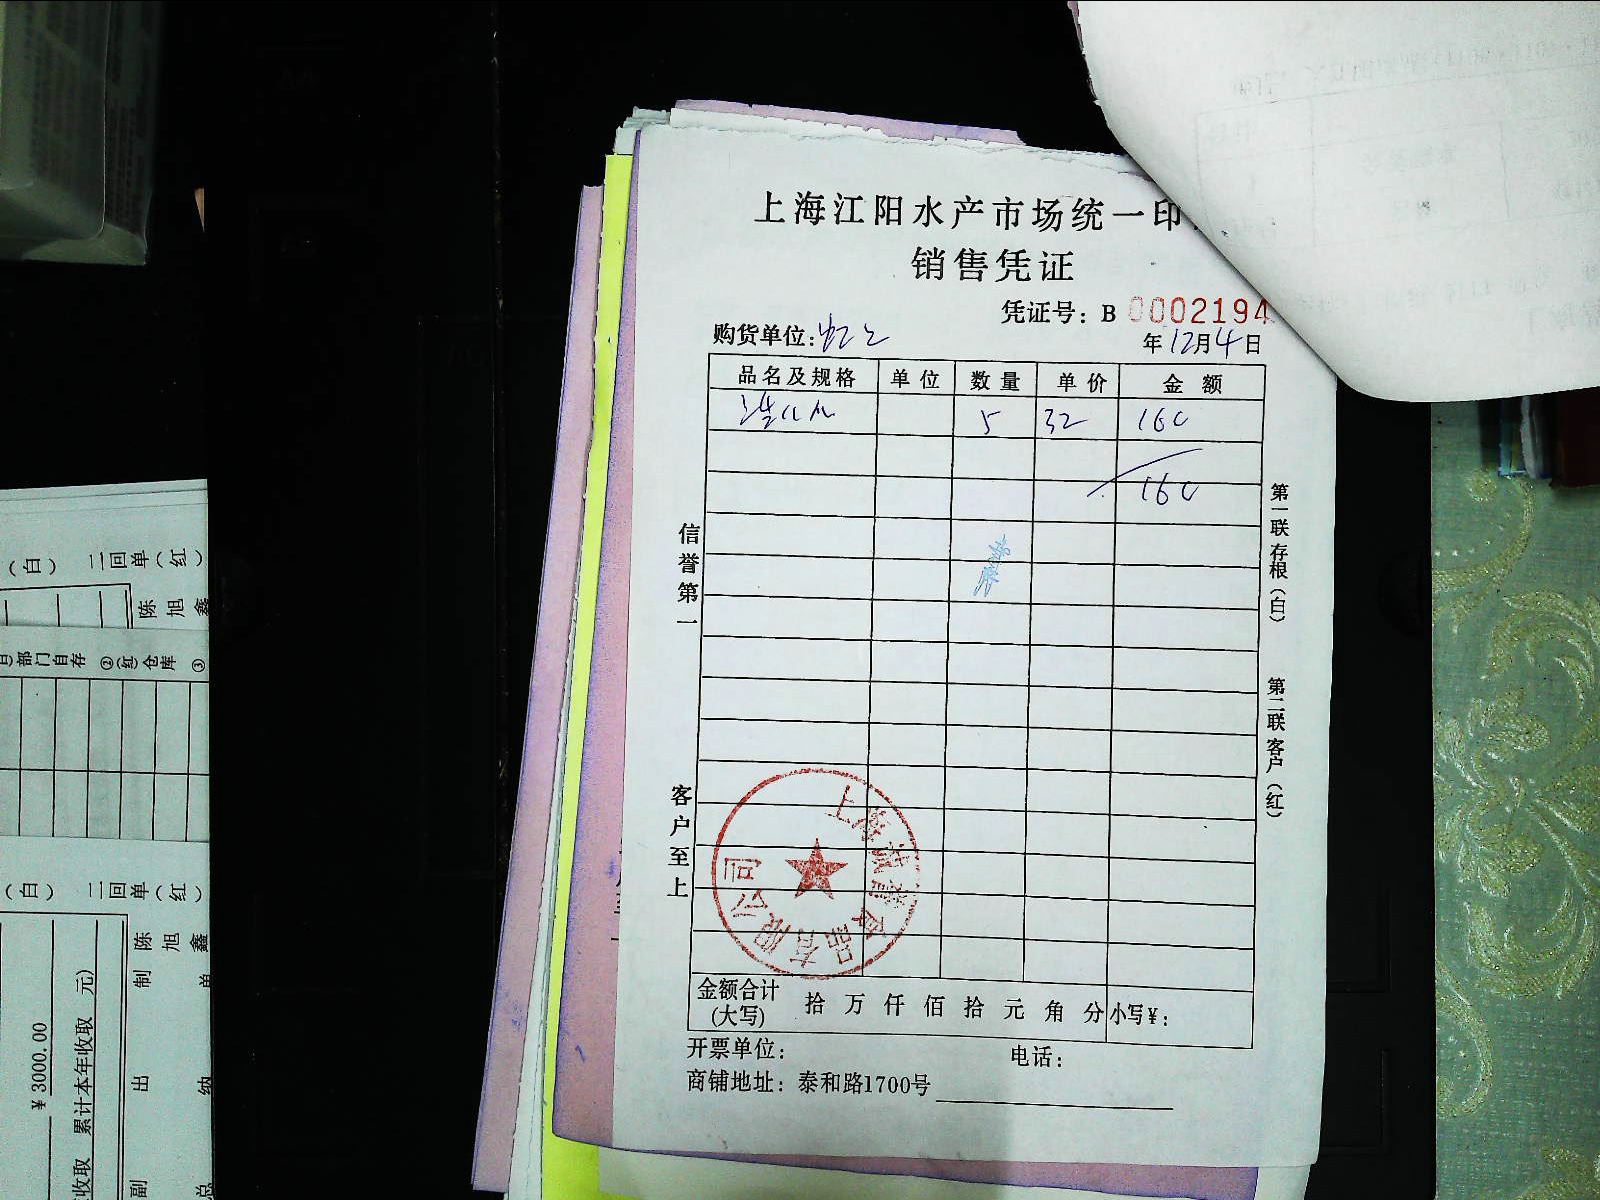 上海江阳水产市场统一印
销售凭证
凭证号：B 0002194
购货单位：
年12月4日
品名及规格 单位 数量 单价 金额
5 32 160
160
信誉第一
客户至上
第一联存根（白）
第二联客户（红）
上海
食品有限公司
金额合计（大写） 拾 万 仟 佰 拾 元 角 分 小写￥：
开票单位： 电话：
商铺地址：泰和路1700号
（白） 二回单（红）
陈旭鑫
部门自存 ②（红）仓库 ③
（白） 二回单（红）
陈旭鑫
制单
出纳
￥3000.00
累计本年收取 元）
收取
副总